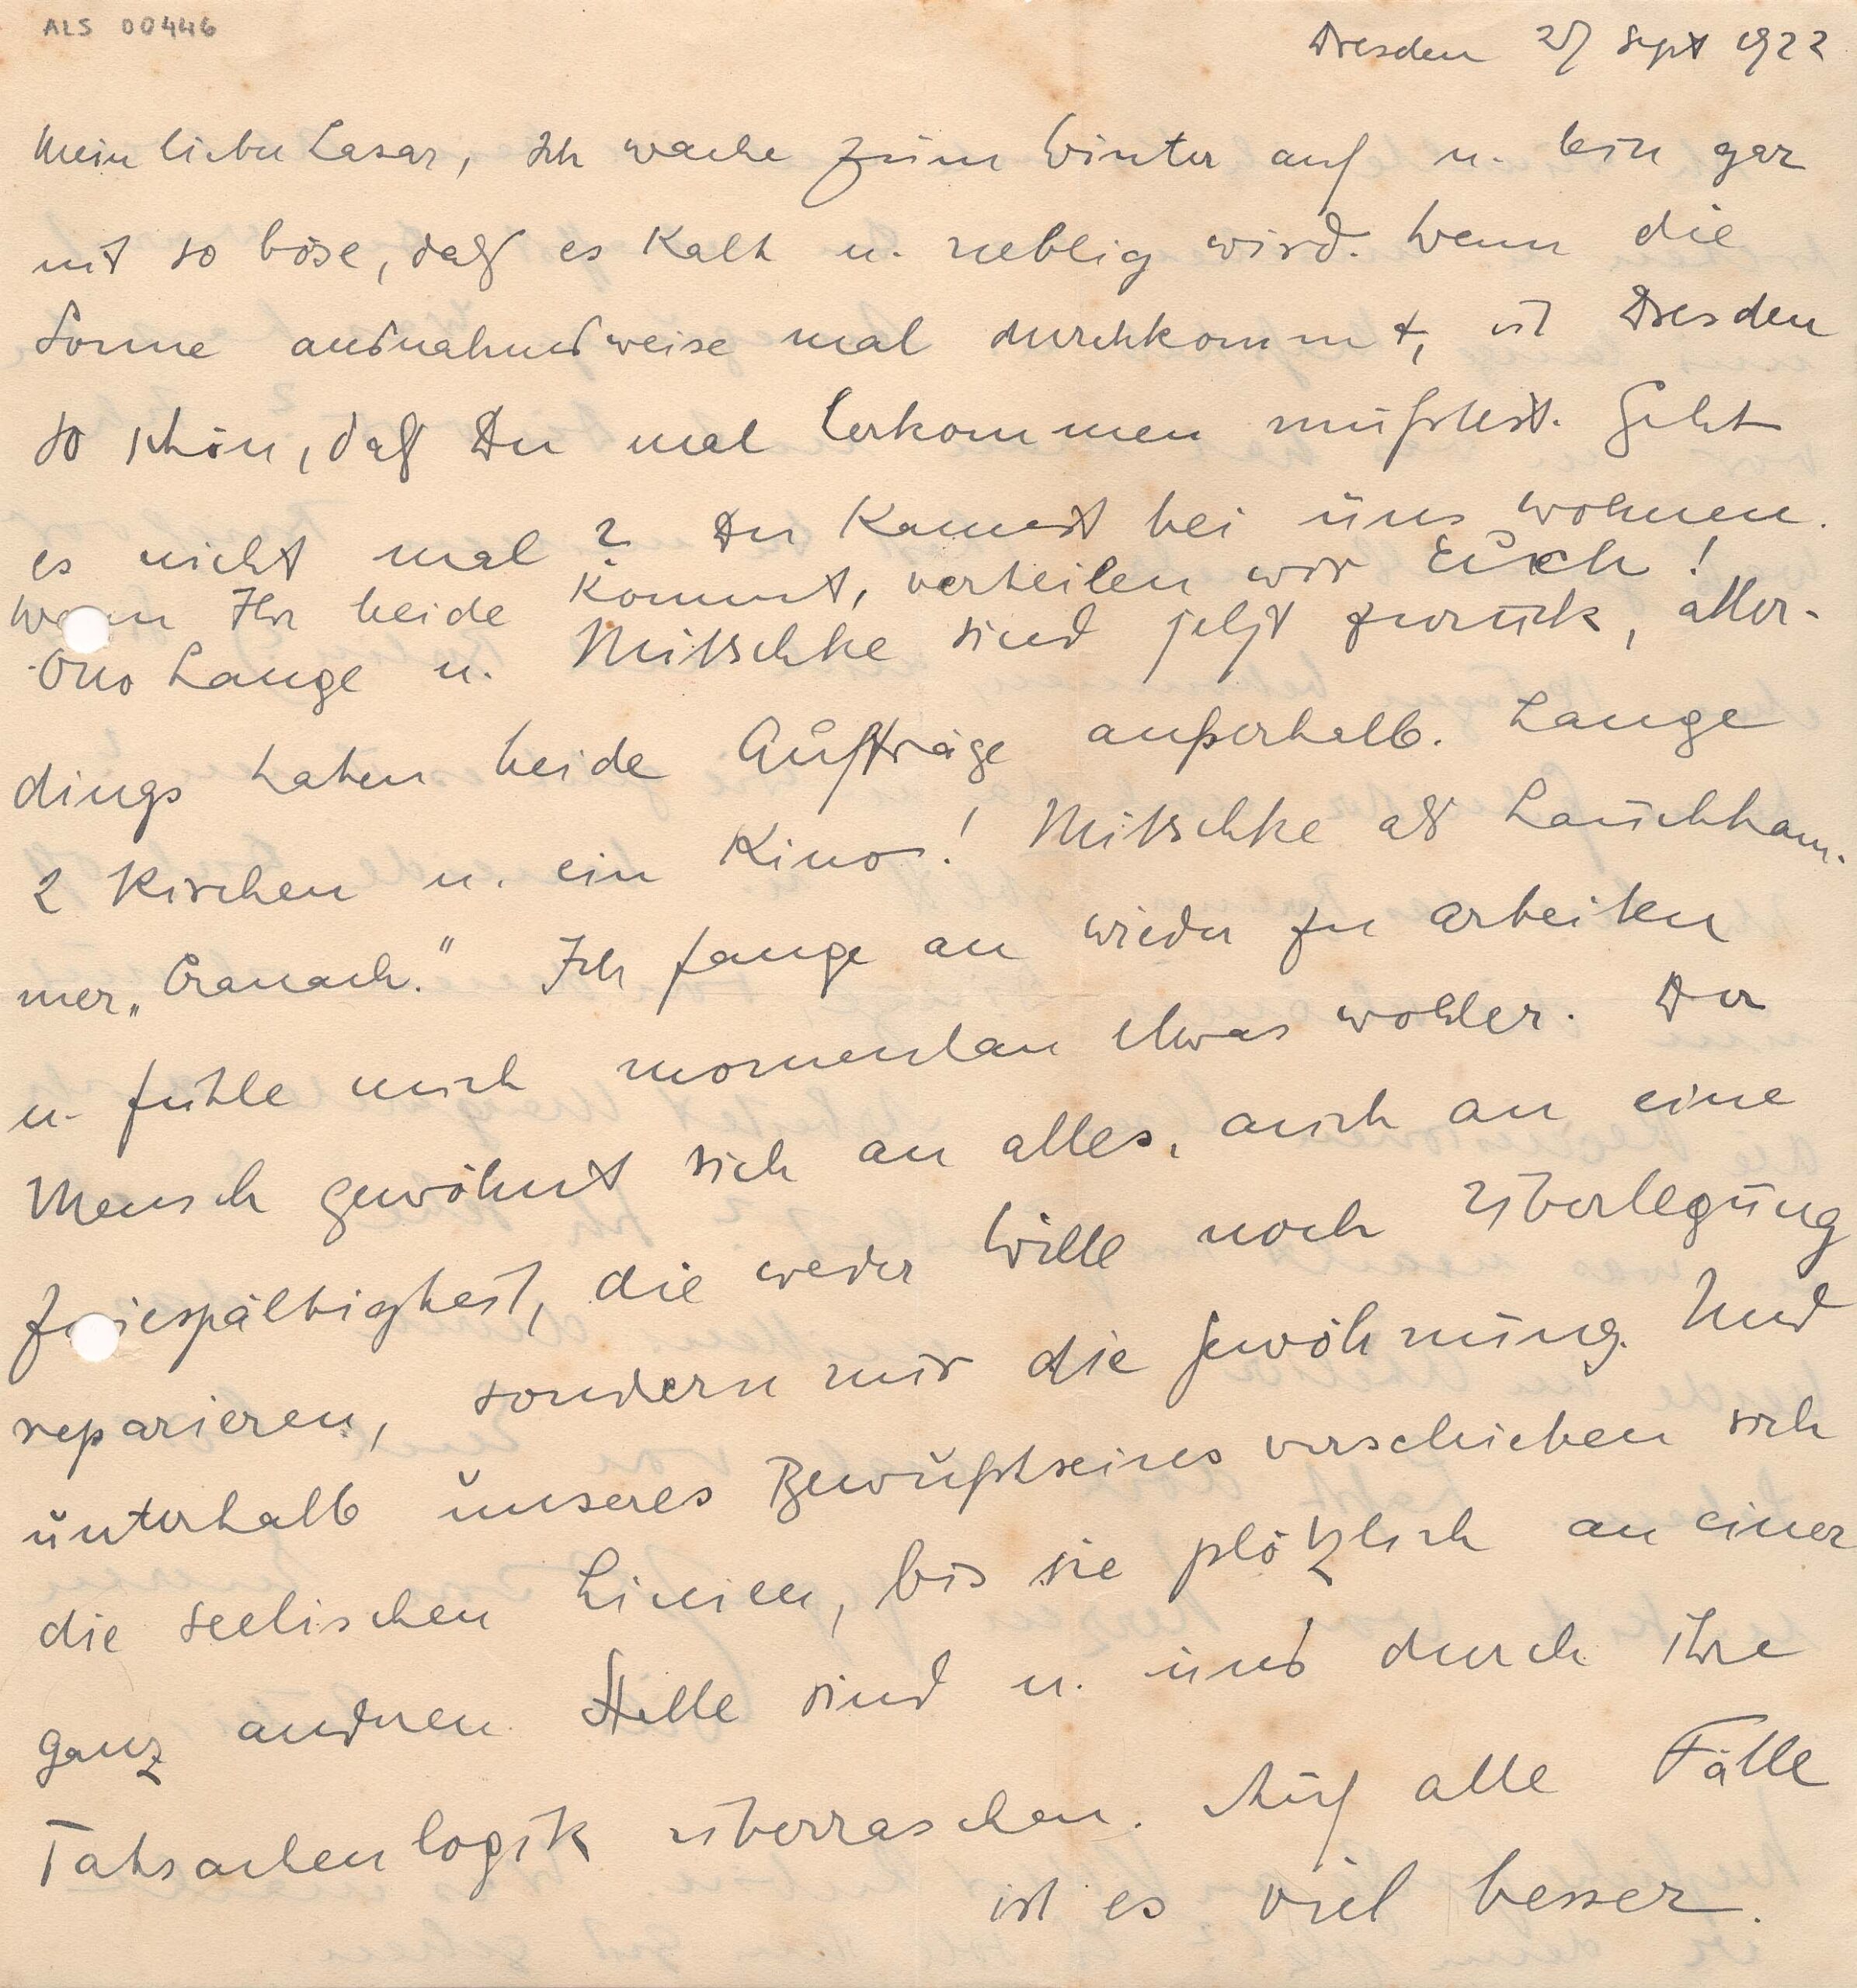 ALS 00446
Dresden 27 Sept 1922
Mein lieber Lasar, Ich wache zum Winter auf u. bin gar
nit so böse, daß es kalt u. neblig wird. Wenn die
Sonne ausnahmsweise mal durchkommt, ist Dresden
so schön, daß Du mal herkommen müßtest. Geht
es nicht mal? Du kannst bei uns wohnen.
Wenn Ihr beide kommt, verteilen wir Euch!
Otto Lange u. Mitschke sind jetzt zurück, aller-
dings haben beide Aufträge außerhalb. Lange
2 Kirchen u. ein Kino! Mitschke als Lauchham-
mer „Cranach." Ich fange an wieder zu arbeiten
u. fühle mich momentan etwas wohler. Der
Mensch gewöhnt sich an alles, auch an eine
Zwiespältigkeit, die weder Wille noch Überlegung
reparieren, sondern nur die Gewöhnung. Und
unterhalb unseres Bewußtseins verschieben sich
die seelischen Linien, bis sie plötzlich an einer
ganz andren Stelle sind u. uns durch ihre
Tatsachenlogik überraschen. Auf alle Fälle
ist es viel besser.